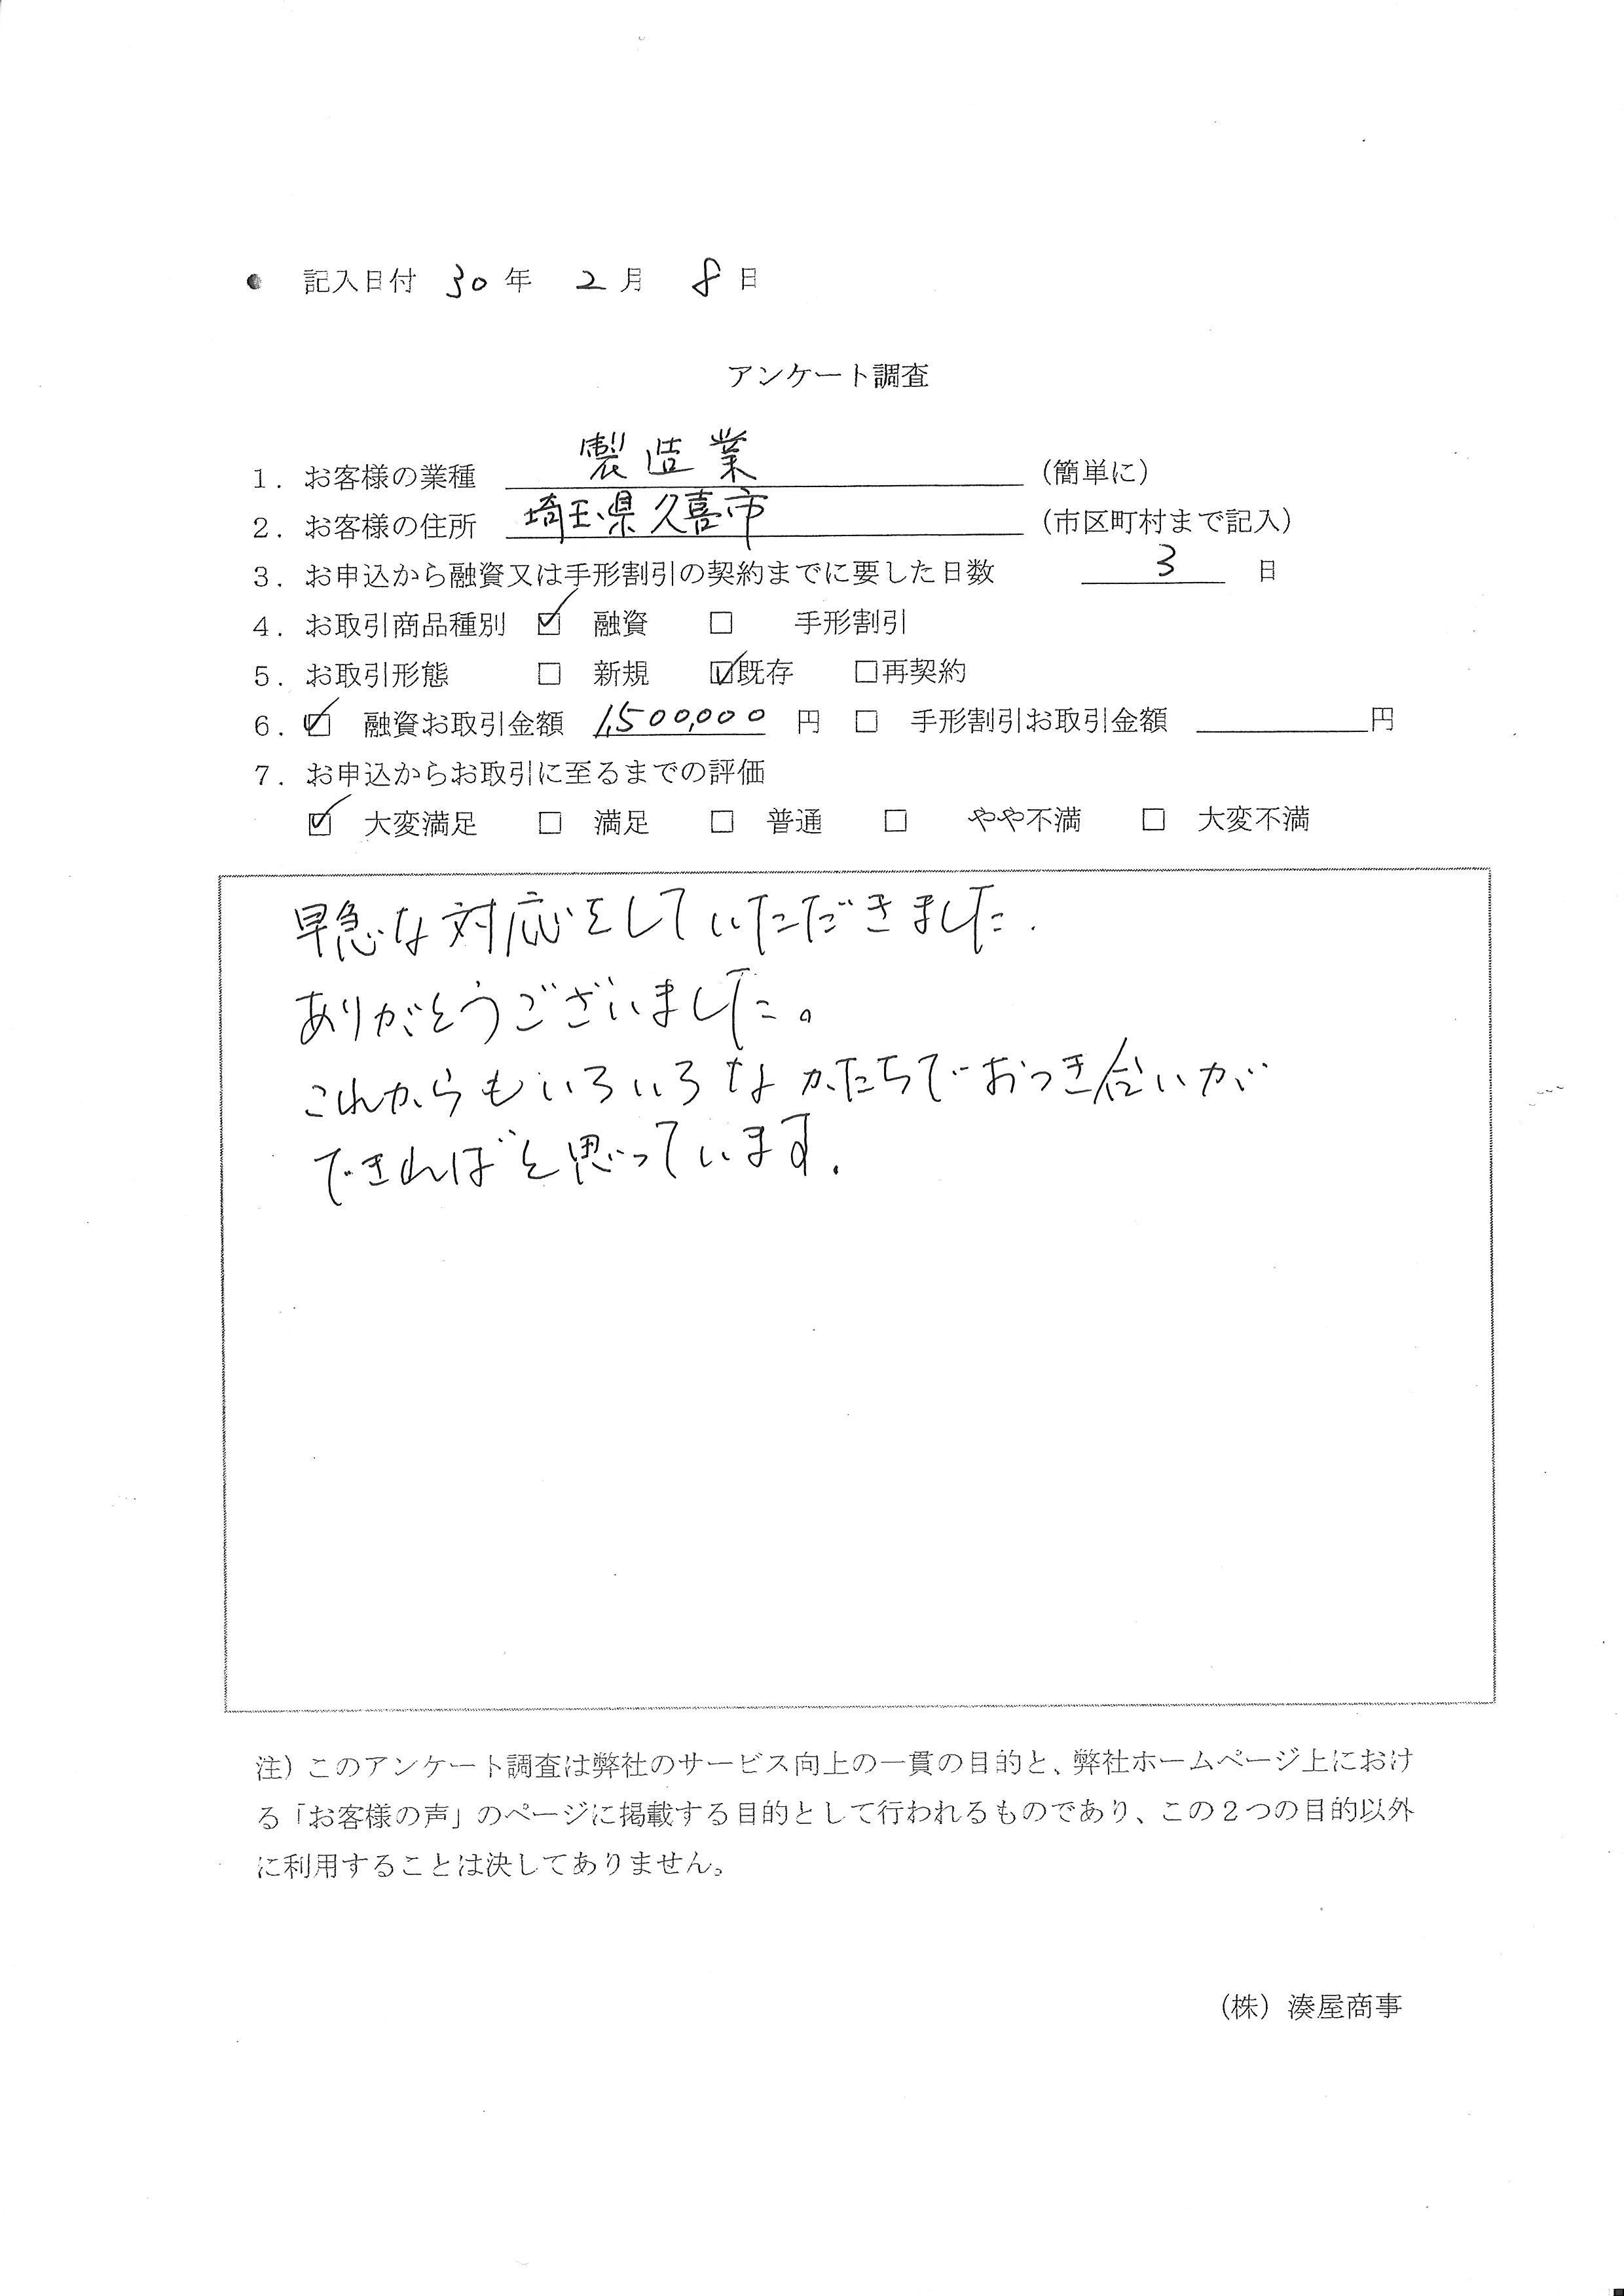 ● 記入日付 30年 2月 8日
アンケート調査
1．お客様の業種 製造業 （簡単に）
2．お客様の住所 埼玉県久喜市 （市区町村まで記入）
3．お申込から融資又は手形割引の契約までに要した日数 3 日
4．お取引商品種別 ☑ 融資 □ 手形割引
5．お取引形態 □ 新規 ☑既存 □再契約
6．☑ 融資お取引金額 1,500,000 円 □ 手形割引お取引金額 ＿＿＿＿円
7．お申込からお取引に至るまでの評価
☑ 大変満足 □ 満足 □ 普通 □ やや不満 □ 大変不満
早急な対応をしていただきました.
ありがとうございました。
これからもいろいろなかたちでおつき合いが
できればと思っています.
注）このアンケート調査は弊社のサービス向上の一貫の目的と、弊社ホームページ上におけ
る「お客様の声」のページに掲載する目的として行われるものであり、この２つの目的以外
に利用することは決してありません。
（株）湊屋商事